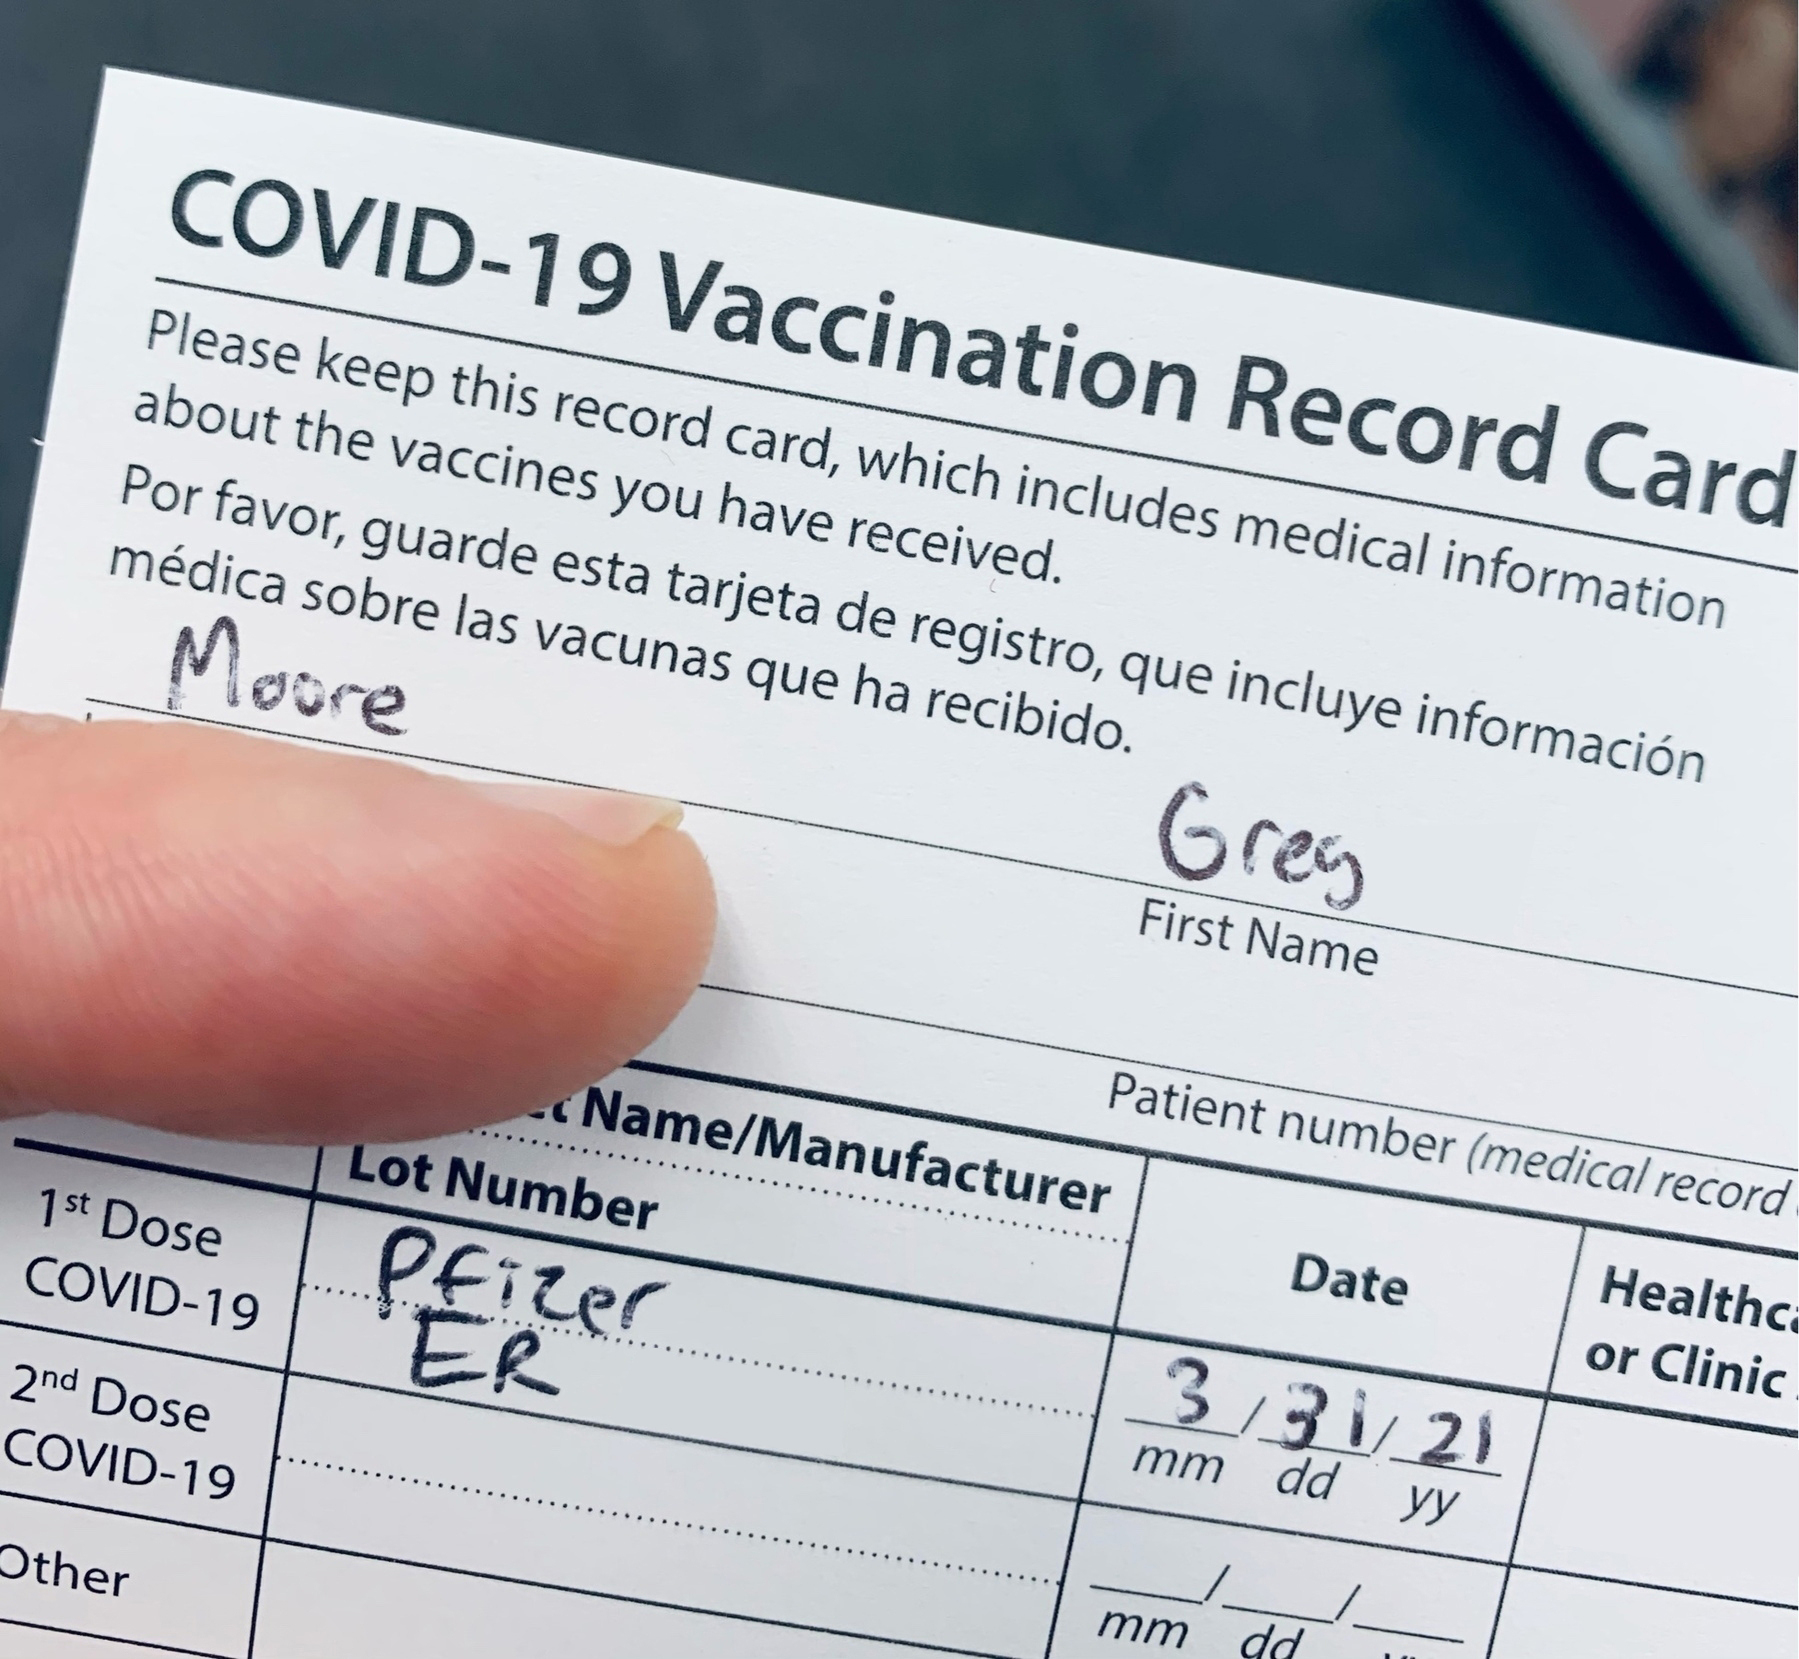 COVID-19 Vaccination Record Card
Please keep this record card, which includes medical information
about the vaccines you have received.
Por favor, guarde esta tarjeta de registro, que incluye información
médica sobre las vacunas que ha recibido.
Moore Greg
First Name
Patient number (medical record
Name/Manufacturer
Lot Number
Date
or Clinic
1st Dose
COVID-19
Pfizer
ER
3 / 31 / 21
mm dd yy
2nd Dose
COVID-19
__/__/__
mm dd
Other